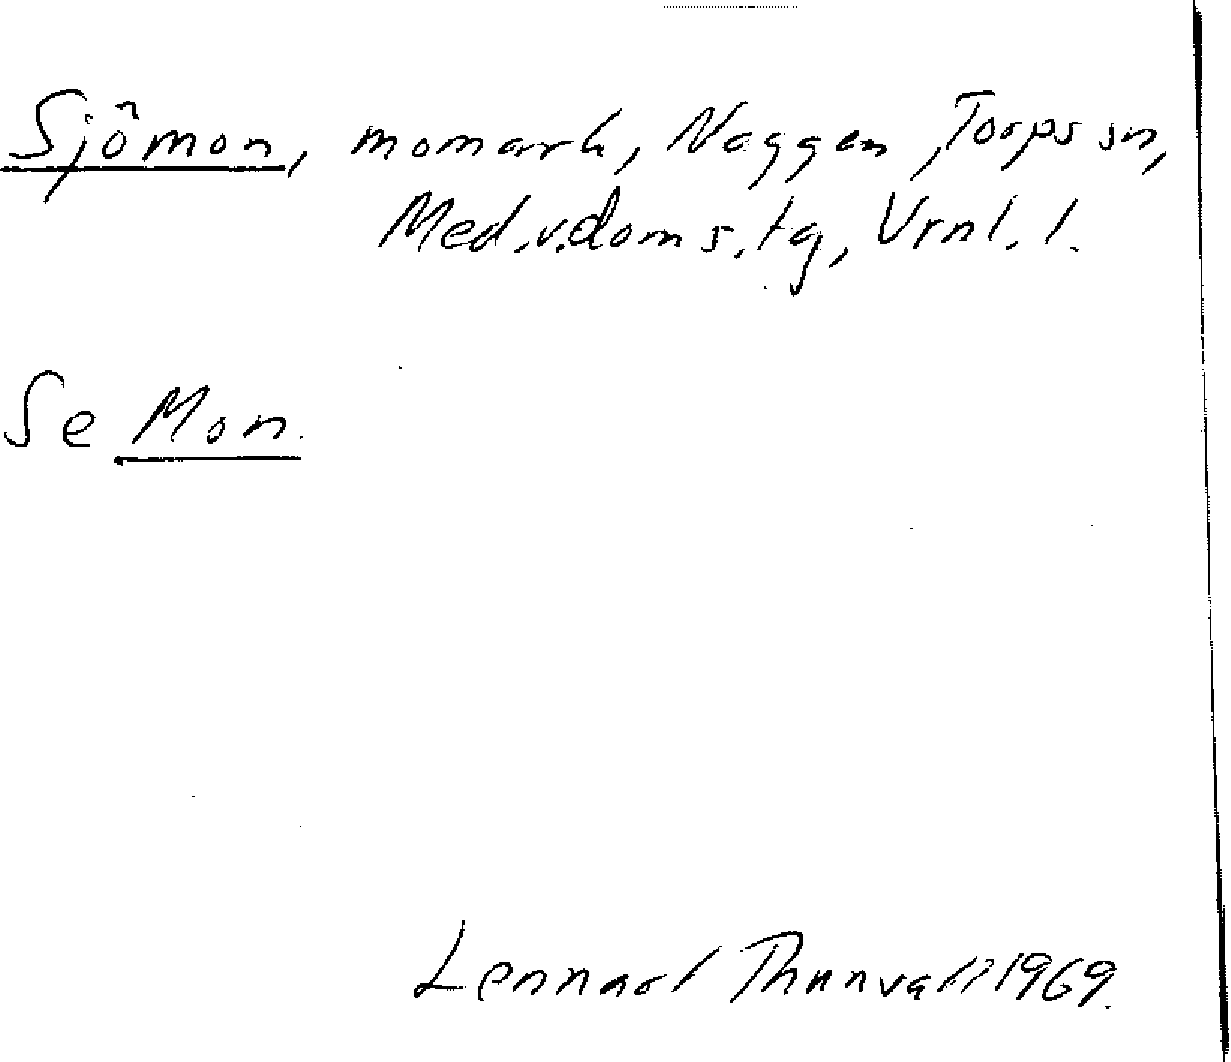 Sjömon, momark, Naggen, Torps sn,
Med. v. doms. tg, Vrnl. l.
Se Mon.
Lennart Thunvall 1969.